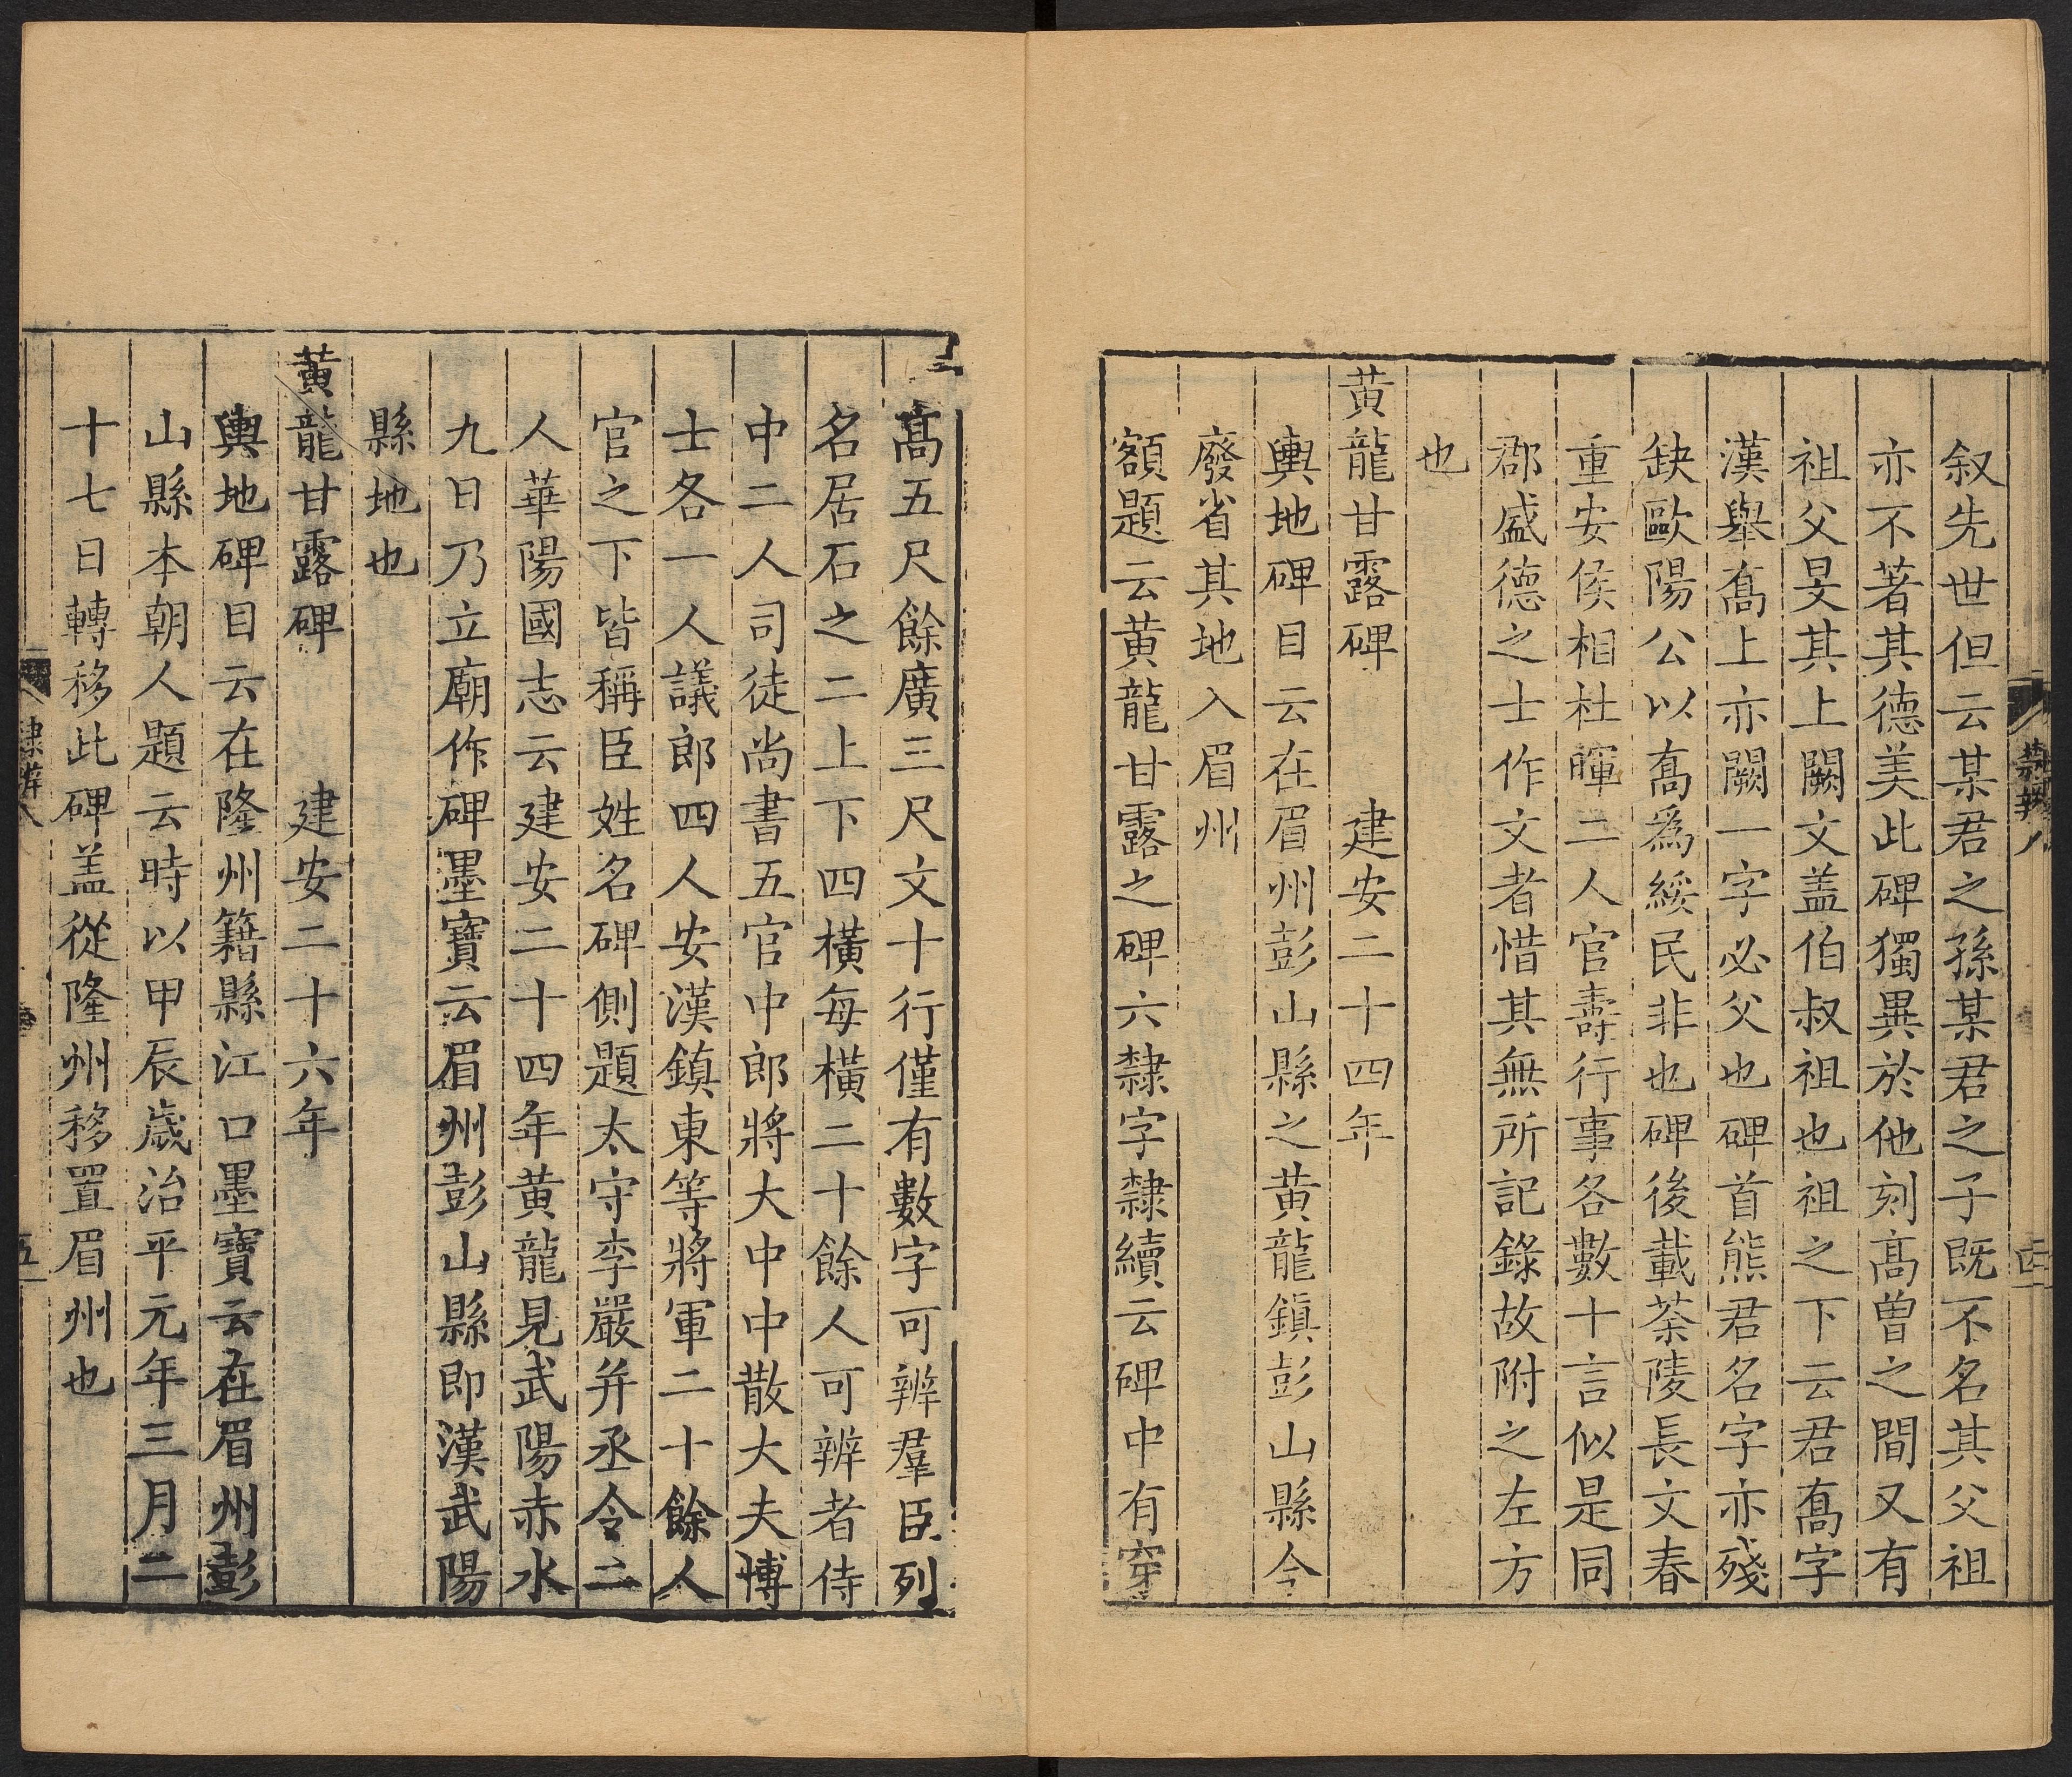 叙先世但云某君之孫某君之子既不名其父祖
亦不著其德美此碑獨異於他刻高曾之間又有
祖父旻其上闕文盖伯叔祖也祖之下云君喬字
漢舉喬上亦闕一字必父也碑首熊君名字亦殘
缺歐陽公以喬爲綏民非也碑後載荼陵長文春
重安侯相杜暉二人官壽行事各數十言似是同
郡盛德之士作文者惜其無所記錄故附之左方
也
黄龍甘露碑 建安二十四年
輿地碑目云在眉州彭山縣之黄龍鎮彭山縣今
廢省其地入眉州
額題云黄龍甘露之碑六隸字隸續云碑中有穿
隸辨八
四
高五尺餘廣三尺文十行僅有數字可辨羣臣列
名居石之二上下四橫每橫二十餘人可辨者侍
中二人司徒尚書五官中郎將大中中散大夫博
士各一人議郎四人安漢鎮東等將軍二十餘人
官之下皆稱臣姓名碑側題太守李嚴并丞令二
人華陽國志云建安二十四年黄龍見武陽赤水
九日乃立廟作碑墨寶云眉州彭山縣即漢武陽
縣地也
黄龍甘露碑 建安二十六年
輿地碑目云在隆州籍縣江口墨寶云在眉州彭
山縣本朝人題云時以甲辰歲治平元年三月二
十七日轉移此碑盖從隆州移置眉州也
隸辨八
五